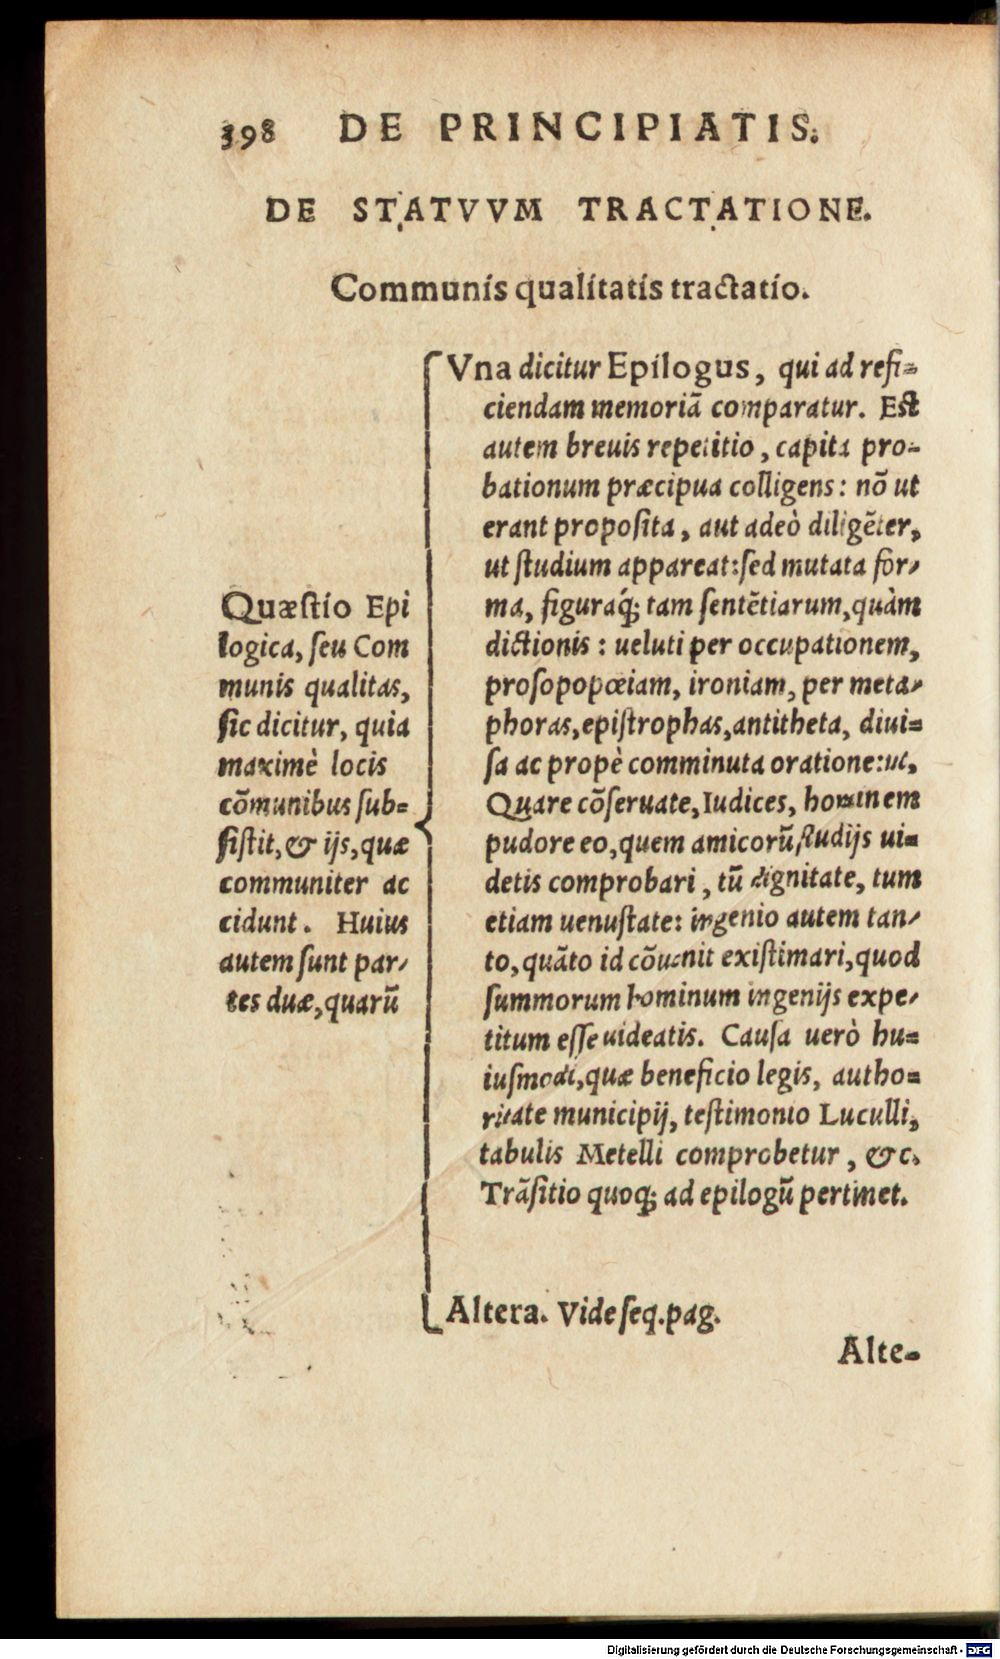 398 DE PRINCIPIATIS.
DE STATVVM TRACTATIONE.
Communis qualitatis tractatio.
Quæstio Epi
logica, seu Com
munis qualitas,
sic dicitur, quia
maximè locis
cõmunibus sub-
sistit, & ijs, quæ
communiter ac
cidunt. Huius
autem sunt par-
tes duæ, quarũ
Vna dicitur Epilogus, qui ad refi-
ciendam memoriã comparatur. Est
autem breuis repetitio, capita pro-
bationum præcipua colligens: nõ ut
erant proposita, aut adeò diligẽter,
ut studium appareat: sed mutata for-
ma, figuraq́; tam sentẽtiarum, quàm
dictionis: ueluti per occupationem,
prosopopœiam, ironiam, per meta-
phoras, epistrophas, antitheta, diui-
sa ac propè comminuta oratione: ut,
Quare cõseruate, Iudices, hominem
pudore eo, quem amicorũ studijs ui-
detis comprobari, tũ dignitate, tum
etiam uenustate: ingenio autem tan-
to, quãto id cõuenit existimari, quod
summorum hominum ingenijs expe-
titum esse uideatis. Causa uerò hu-
iusmodi, quæ beneficio legis, autho-
ritate municipij, testimonio Luculli,
tabulis Metelli comprobetur, &c.
Trãsitio quoq; ad epilogũ pertinet.
Altera. Vide seq. pag.
Alte-
Digitalisierung gefördert durch die Deutsche Forschungsgemeinschaft - DFG